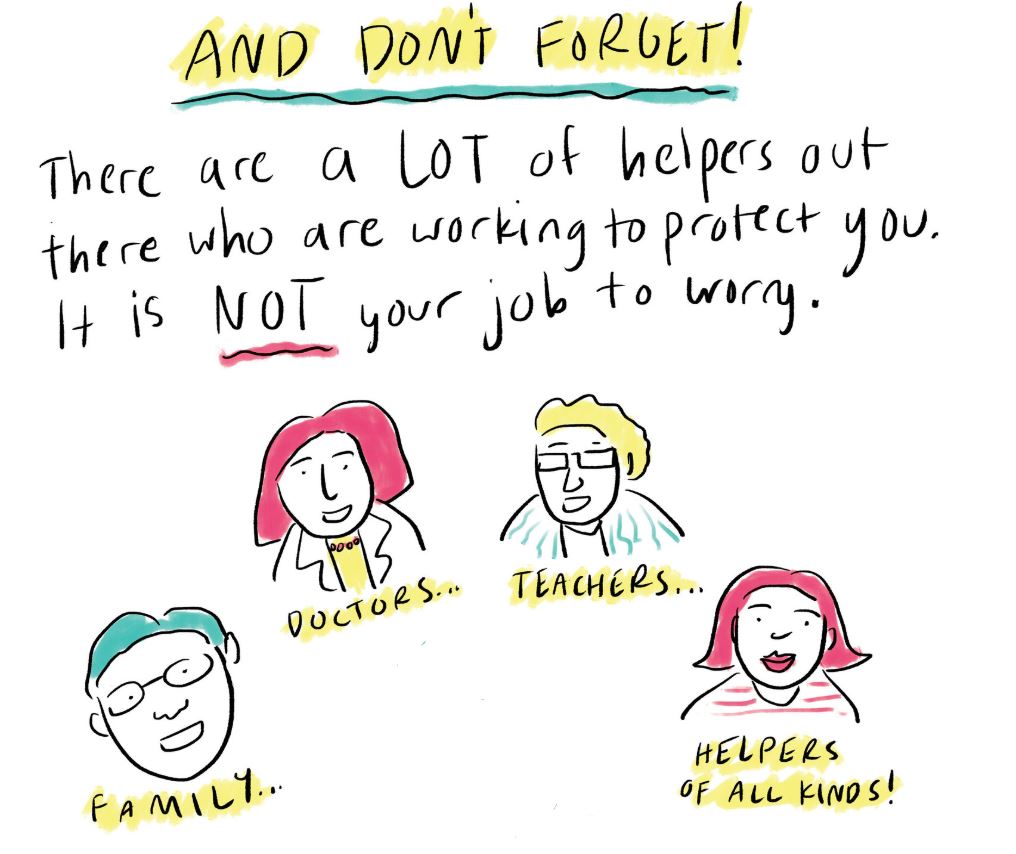 AND DON'T FORGET!
There are a LOT of helpers out
there who are working to protect you.
It is NOT your job to worry.
FAMILY...
DOCTORS...
TEACHERS...
HELPERS
OF ALL KINDS!